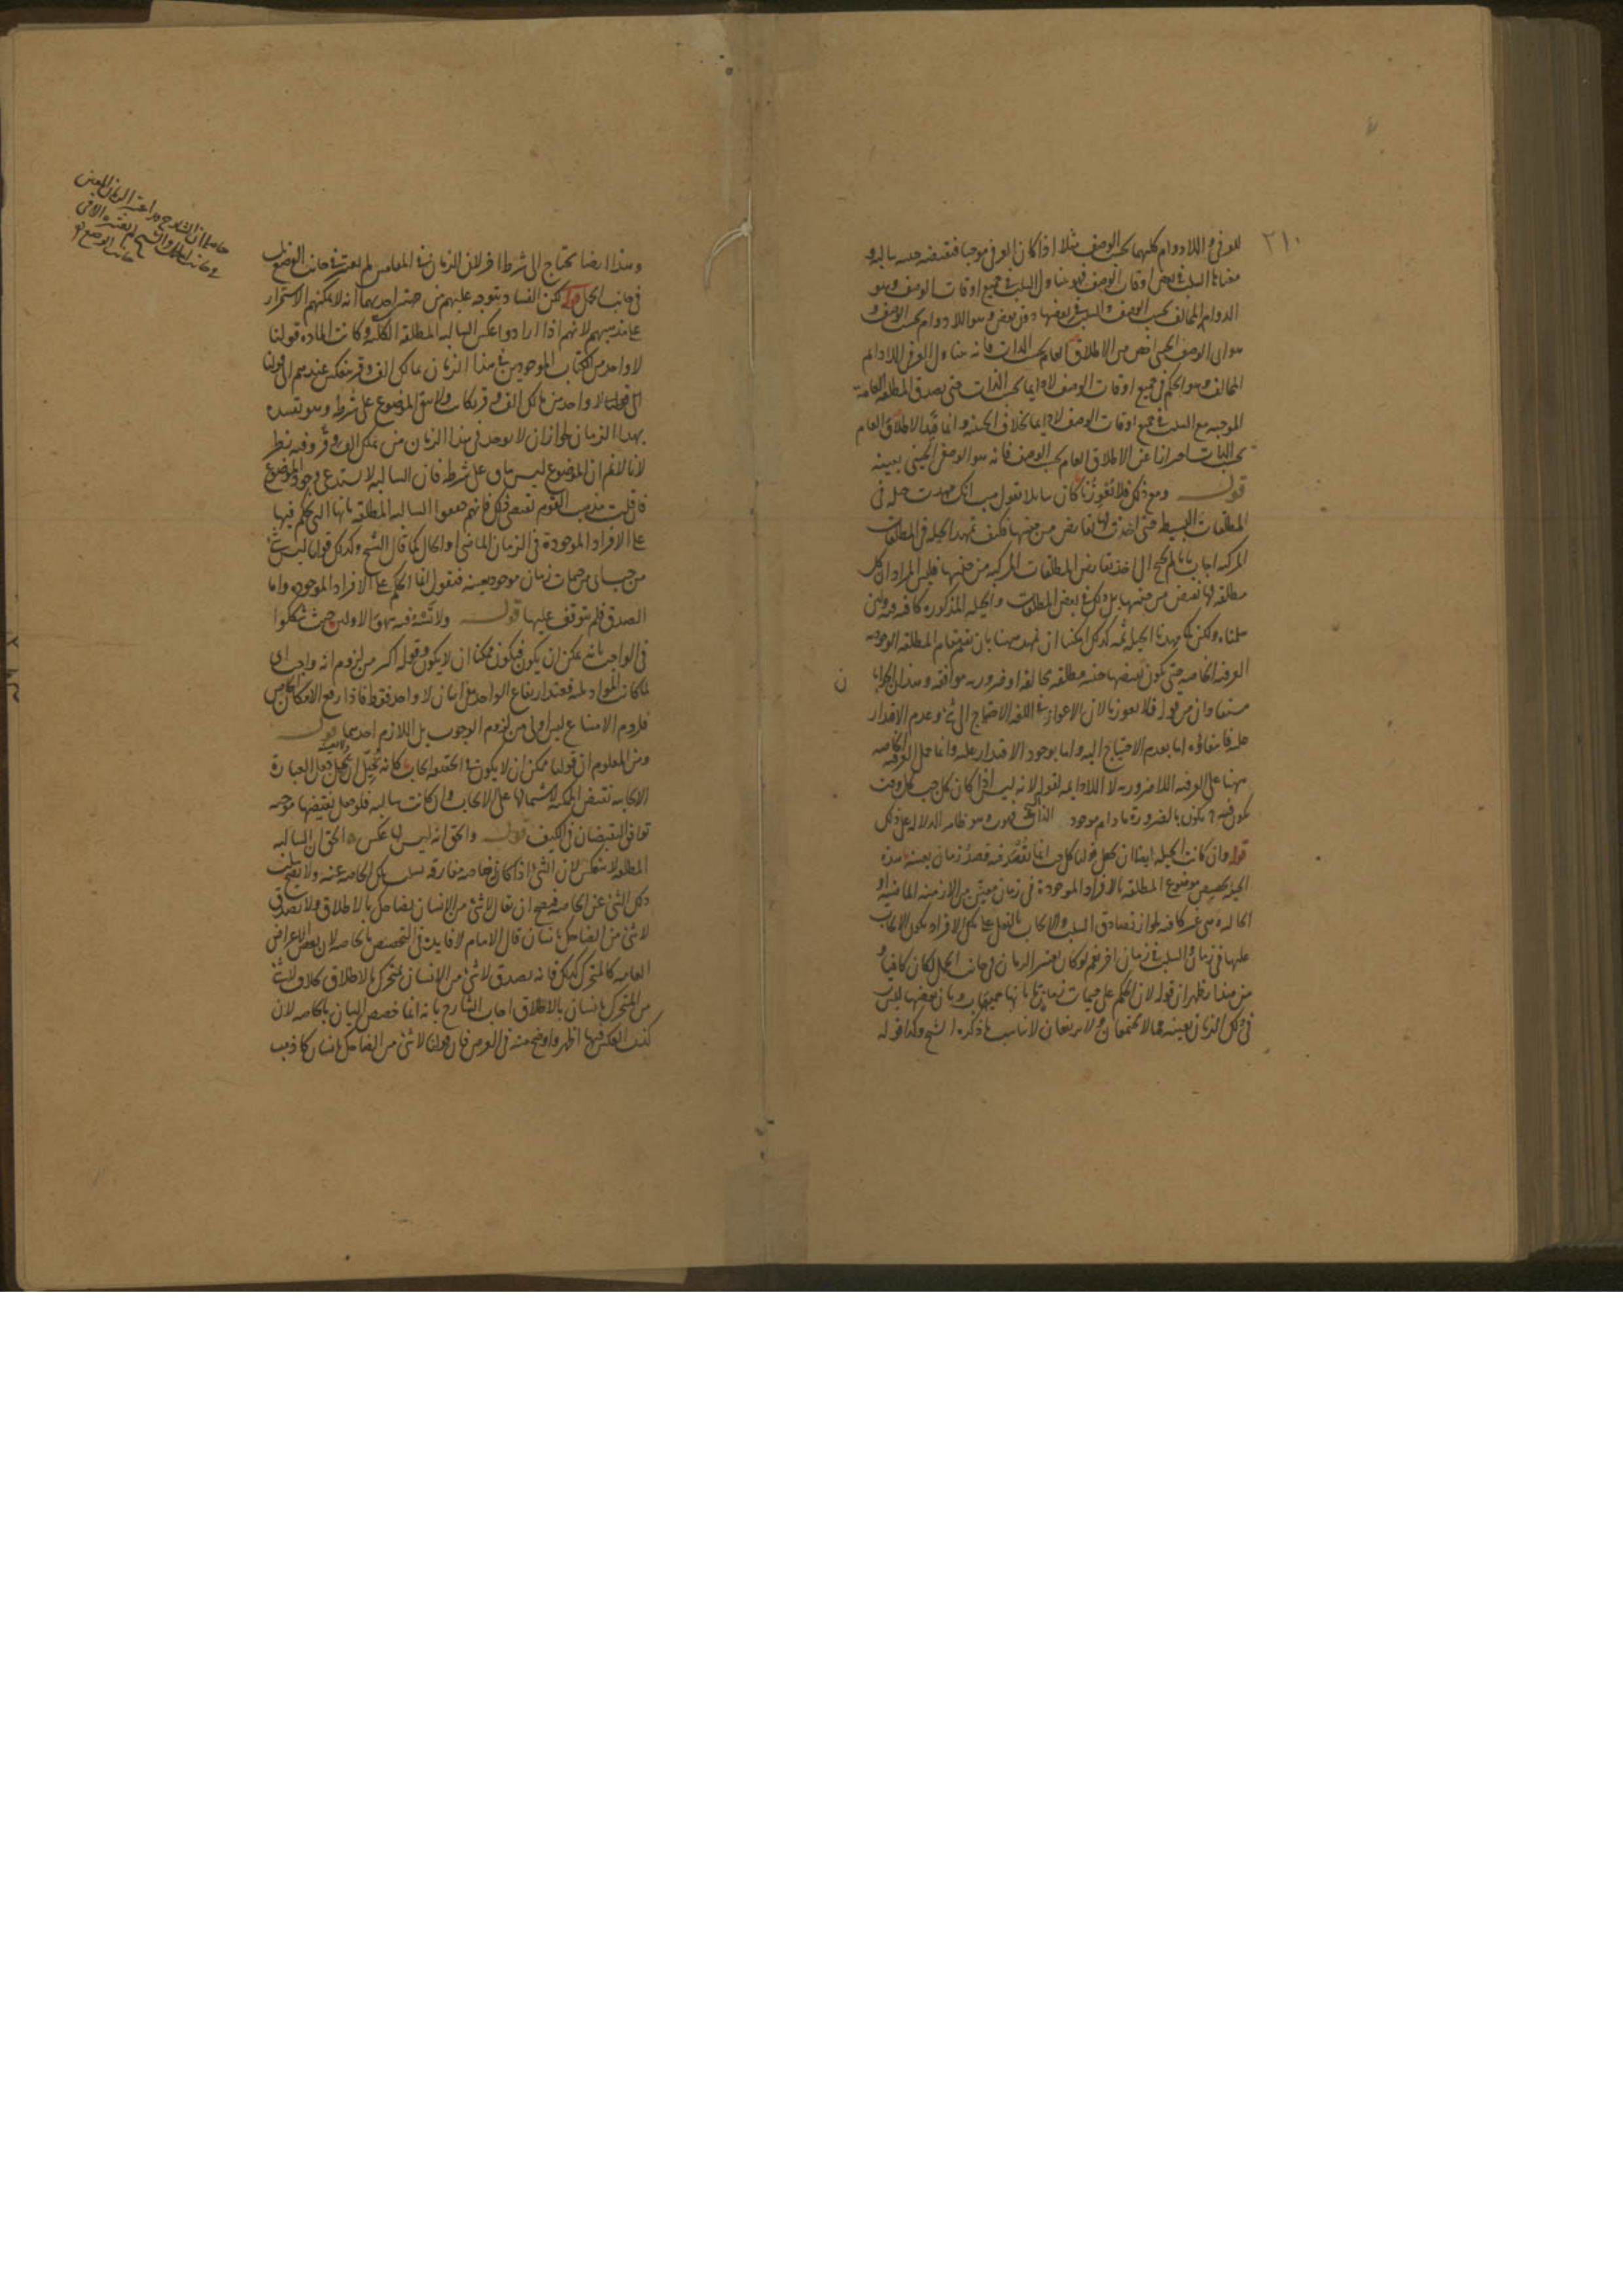 ٢١٠
للعرفى واللادوام كليهما بحسب الوصف مثلا اذا كان العرفى موجبا فنقيضه حينيه سالبة و
معناها السلب فى بعض اوقات الوصف فهو يتناول السلب فى جميع اوقات الوصف وهو
الدوام المخالف بحسب الوصف والسلب فى بعضها دون بعض وهو اللادوام بحسب الوصف و
هو اى الوصف الحينى اخص من الاطلاق العام بحسب الذات فانه يتناول العرفى اللادايم
المخالف وهو الحكم فى جميع اوقات الوصف لا دايما بحسب الذات حتى يصدق المطلقة العامة
الموجبه مع السلب فى جميع اوقات الوصف لا دايما بخلاف الحينيه وانما قيد الاطلاق العام
بحسب الذات احترازا عن الاطلاق العام بحسب الوصف فانه هو الوصفى الحينى بعينه
قوله وهو ذلك فلا يعوزنا كان سايلا يقول هب انك مهدت حيله فى
المطلقات البسيطه حتى اخذت لها نقايض من جنسها فكيف تمهد الحيلة فى المطلقات
المركبه اجاب بانا لم نحتج الى اخذ نقايض المطلقات المركبه من جنسها فليس المراد ان كل
مطلقه لها نقيض من جنسها بل ذلك فى بعض المطلقات والحيله المذكوره كافيه فيه ولئن
سلمناه ولكن كما مهدنا الحيلة ثمه كذلك امكننا ان نمهد ههنا بان نقيم مقام المطلقه الوجوديه
العرفيه الخاصه حتى يكون نقيضها حينيه مطلقه مخالفة او ضروريه موافقه وهذان الجوابان
مستفادان من قوله فلا يعوزنا لان الاعواز فى اللغه الاحتياج الى شئ وعدم الاقتدار
عليه فانتفاؤه اما بعدم الاحتياج اليه واما بوجود الاقتدار عليه وانما حمل العرفيه الخاصه
ههنا على العرفيه اللاضروريه لا اللادايمه لقوله لانه ليس اذا كان كل ج ب كل وقت
يكون فيه ج يكون بالضرورة ما دام موجود الذات فهو ب وهو ظاهر الدلاله على ذلك
قوله وان كانت الحيله ايضا ان نجعل قولنا كل ج ب انما نقصد فيه قصد زمان بعينه هذه
الحيله تخصيص موضوع المطلقه بالافراد الموجودة فى زمان معين من الازمنه الماضيه او
الحاليه وهى غير كافيه لجواز تصادق السلب والايجاب بالفعل على تلك الافراد بكون الايجاب
عليها فى زمان والسلب فى زمان اخر نعم لو كان يعتبر الزمان فى جانب الحمل لكان كافيا و
من هذا يظهر ان قوله لان الحكم على جيمات زمان ما بانها جميعها ب وبان بعضها ليس ب
فى ذلك الزمان بعينه مما لا يجتمعان ولا يرتفعان لا يناسب ما ذكره الشيخ وكذا قوله
وهذا ايضا يحتاج الى شرط اخر لان الزمان فى المقامين لم يعتبر فى جانب الوضع بل
فى جانب الحمل قوله لكن الفساد يتوجه عليهم من جهتين احديهما انه لا يمكنهم الاستمرار
على مذهبهم لانهم اذا ارادوا عكس السالبه المطلقة الكليه وكانت الماده قولنا
لا واحد من الكتاب الموجودين فى هذا الزمان مالك الف وقر فعكسه عندهم الى قولنا
لا واحد من مالك الف وقر بكاتب ولا يبقى الموضوع على شرطه وهو تقييده
بهذا الزمان لجواز ان لا يوجد فى هذا الزمان من يملك الف وقر وفيه نظر
لانا لا نم ان الموضوع ليس باق على شرطه فان السالبه لا يستدعى وجود الموضوع
فان قلت مذهب القوم يقتضى ذلك فانهم وضعوا السالبه المطلقه بانها التى يحكم فيها
على الافراد الموجودة فى الزمان الماضى او الحال كما قال الشيخ وكذلك قولنا ليس شئ
من ج ب اى من جيمات زمان موجود بعينه فنقول انما الحكم على الافراد الموجوده واما
الصدق فلم يتوقف عليها قوله ولانه فيه سهو الاولين حيث شككوا
فى الواجب بانه يمكن ان يكون فيكون ممكنا ان لا يكون وقوله اكثر من لزوم انه واجب اى
لما كانت المواد ثلثه فعند ارتفاع الواحد يبقى اثنان لا واحد فقط فاذا رفع الامكان الخاص
فلزوم الامتناع ليس اولى من لزوم الوجوب بل اللازم احدهما قوله
ومن المعلوم ان قولنا ممكن ان لا يكون فى الحقيقه ايجاب كانه تخيل ان يجعل العبارة
الايجابيه نقيض الممكنة لاشتمالها على الايجاب وان كانت سالبه فلو جعل نقيضها موجبه
توافق النقيضان فى الكيف قوله والحق انه ليس لها عكس الحق ان السالبه
المطلقه لا تنعكس لان الشئ اذا كان له خاصه مفارقه يسلب تلك الخاصه عنه ولا يصح سلب
ذلك الشئ عن الخاصه فيصح ان يقال لا شئ من الانسان بضاحك بالاطلاق ولا يصدق
لا شئ من الضاحك بانسان قال الامام لا فايدة فى التخصيص بالخاصه لان بعض الاعراض
العامه كالمتحرك كذلك فانه يصدق لا شئ من الانسان بمتحرك بالاطلاق بخلاف لا شئ
من المتحرك بانسان بالاطلاق اجاب الشارح بانه انما خصص البيان بالخاصه لان
كذب العكس فيها اظهر واوضح منه فى العرض فان قولنا لا شئ من الضاحك بانسان كاذب